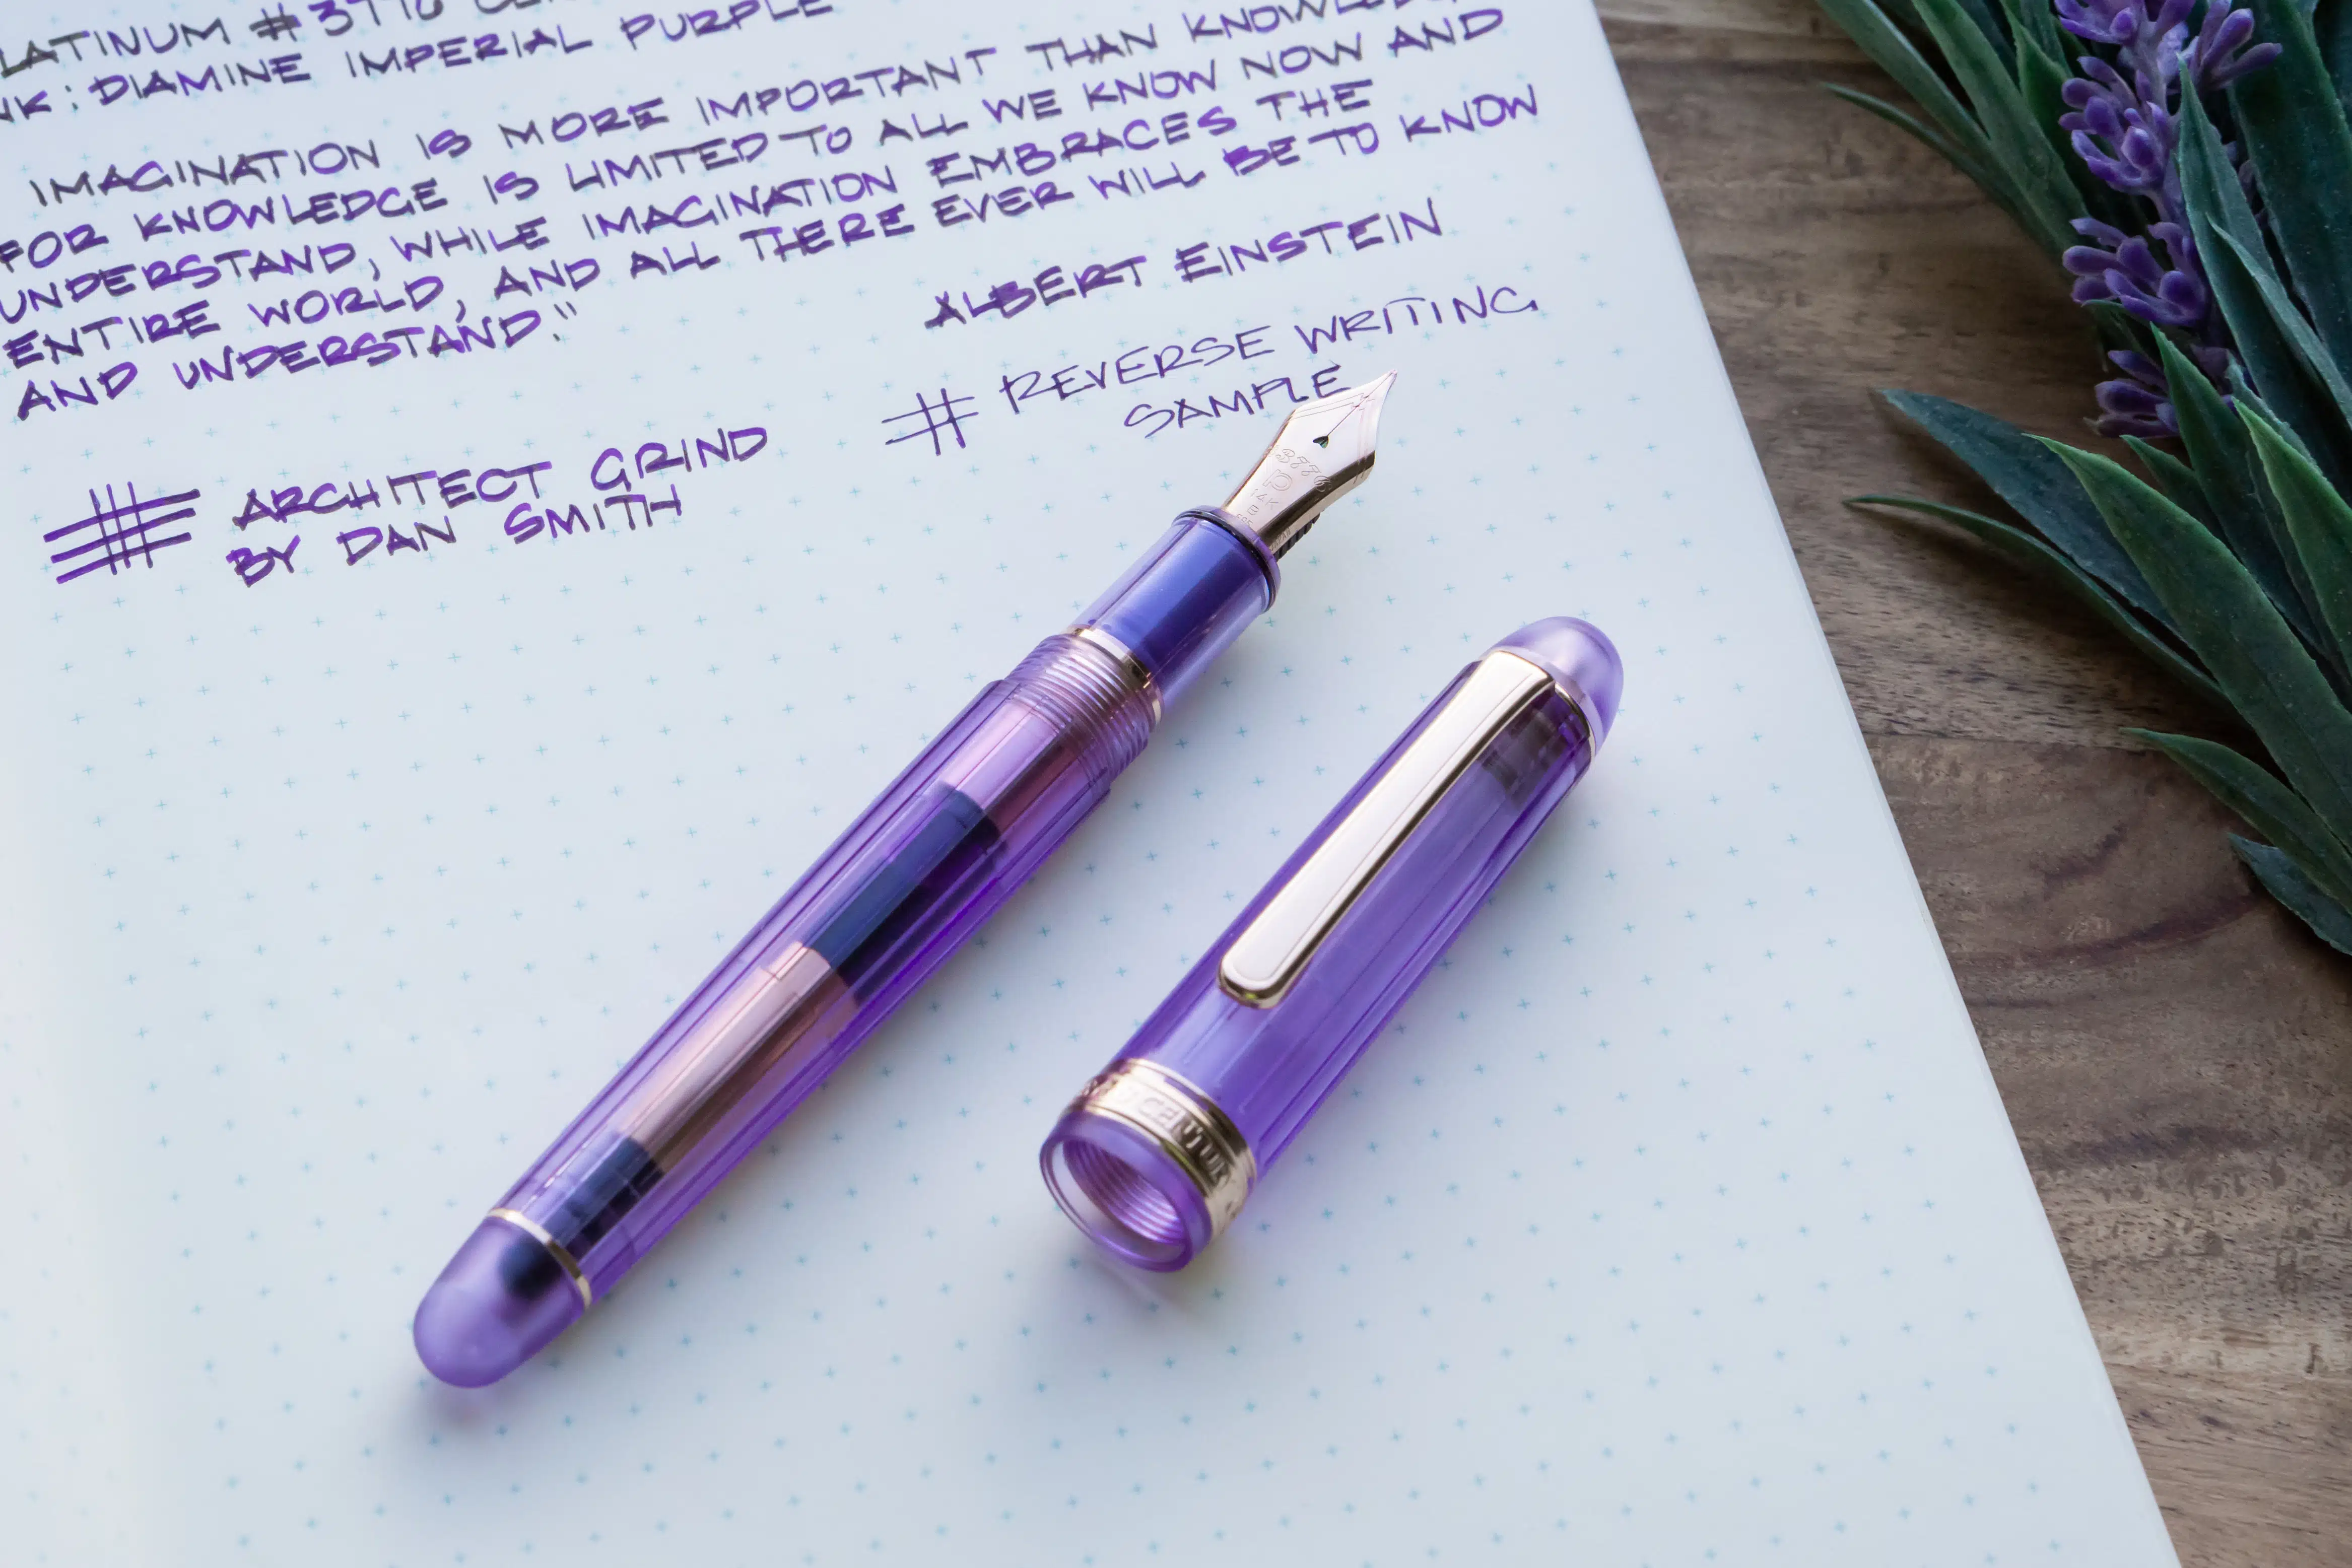 PLATINUM #3776
INK: DIAMINE IMPERIAL PURPLE
IMAGINATION IS MORE IMPORTANT THAN
FOR KNOWLEDGE IS LIMITED TO ALL WE KNOW NOW AND
UNDERSTAND, WHILE IMAGINATION EMBRACES THE
ENTIRE WORLD, AND ALL THERE EVER WILL BE TO KNOW
AND UNDERSTAND."
ALBERT EINSTEIN
# REVERSE WRITING
SAMPLE
ARCHITECT GRIND
BY DAN SMITH
3776
14K
B